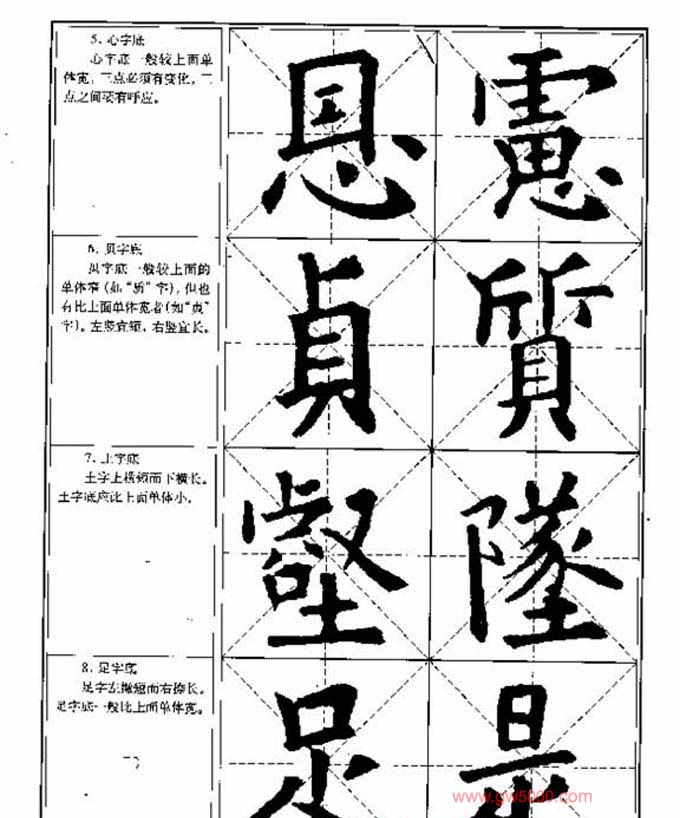 5. 心字底
心字底一般较上面单
体宽，三点必须有变化，三
点之间要有呼应。
恩 慮
6. 贝字底
贝字底一般较上面的
单体窄（如“质”字），但也
有比上面单体宽者（如“贞”
字）。左竖宜短，右竖宜长。
貞 質
7. 土字底
土字上横短而下横长。
土字底应比上面单体小。
壑 墜
8. 足字底
足字左撇短而右捺长。
足字底一般比上面单体宽。
足 是